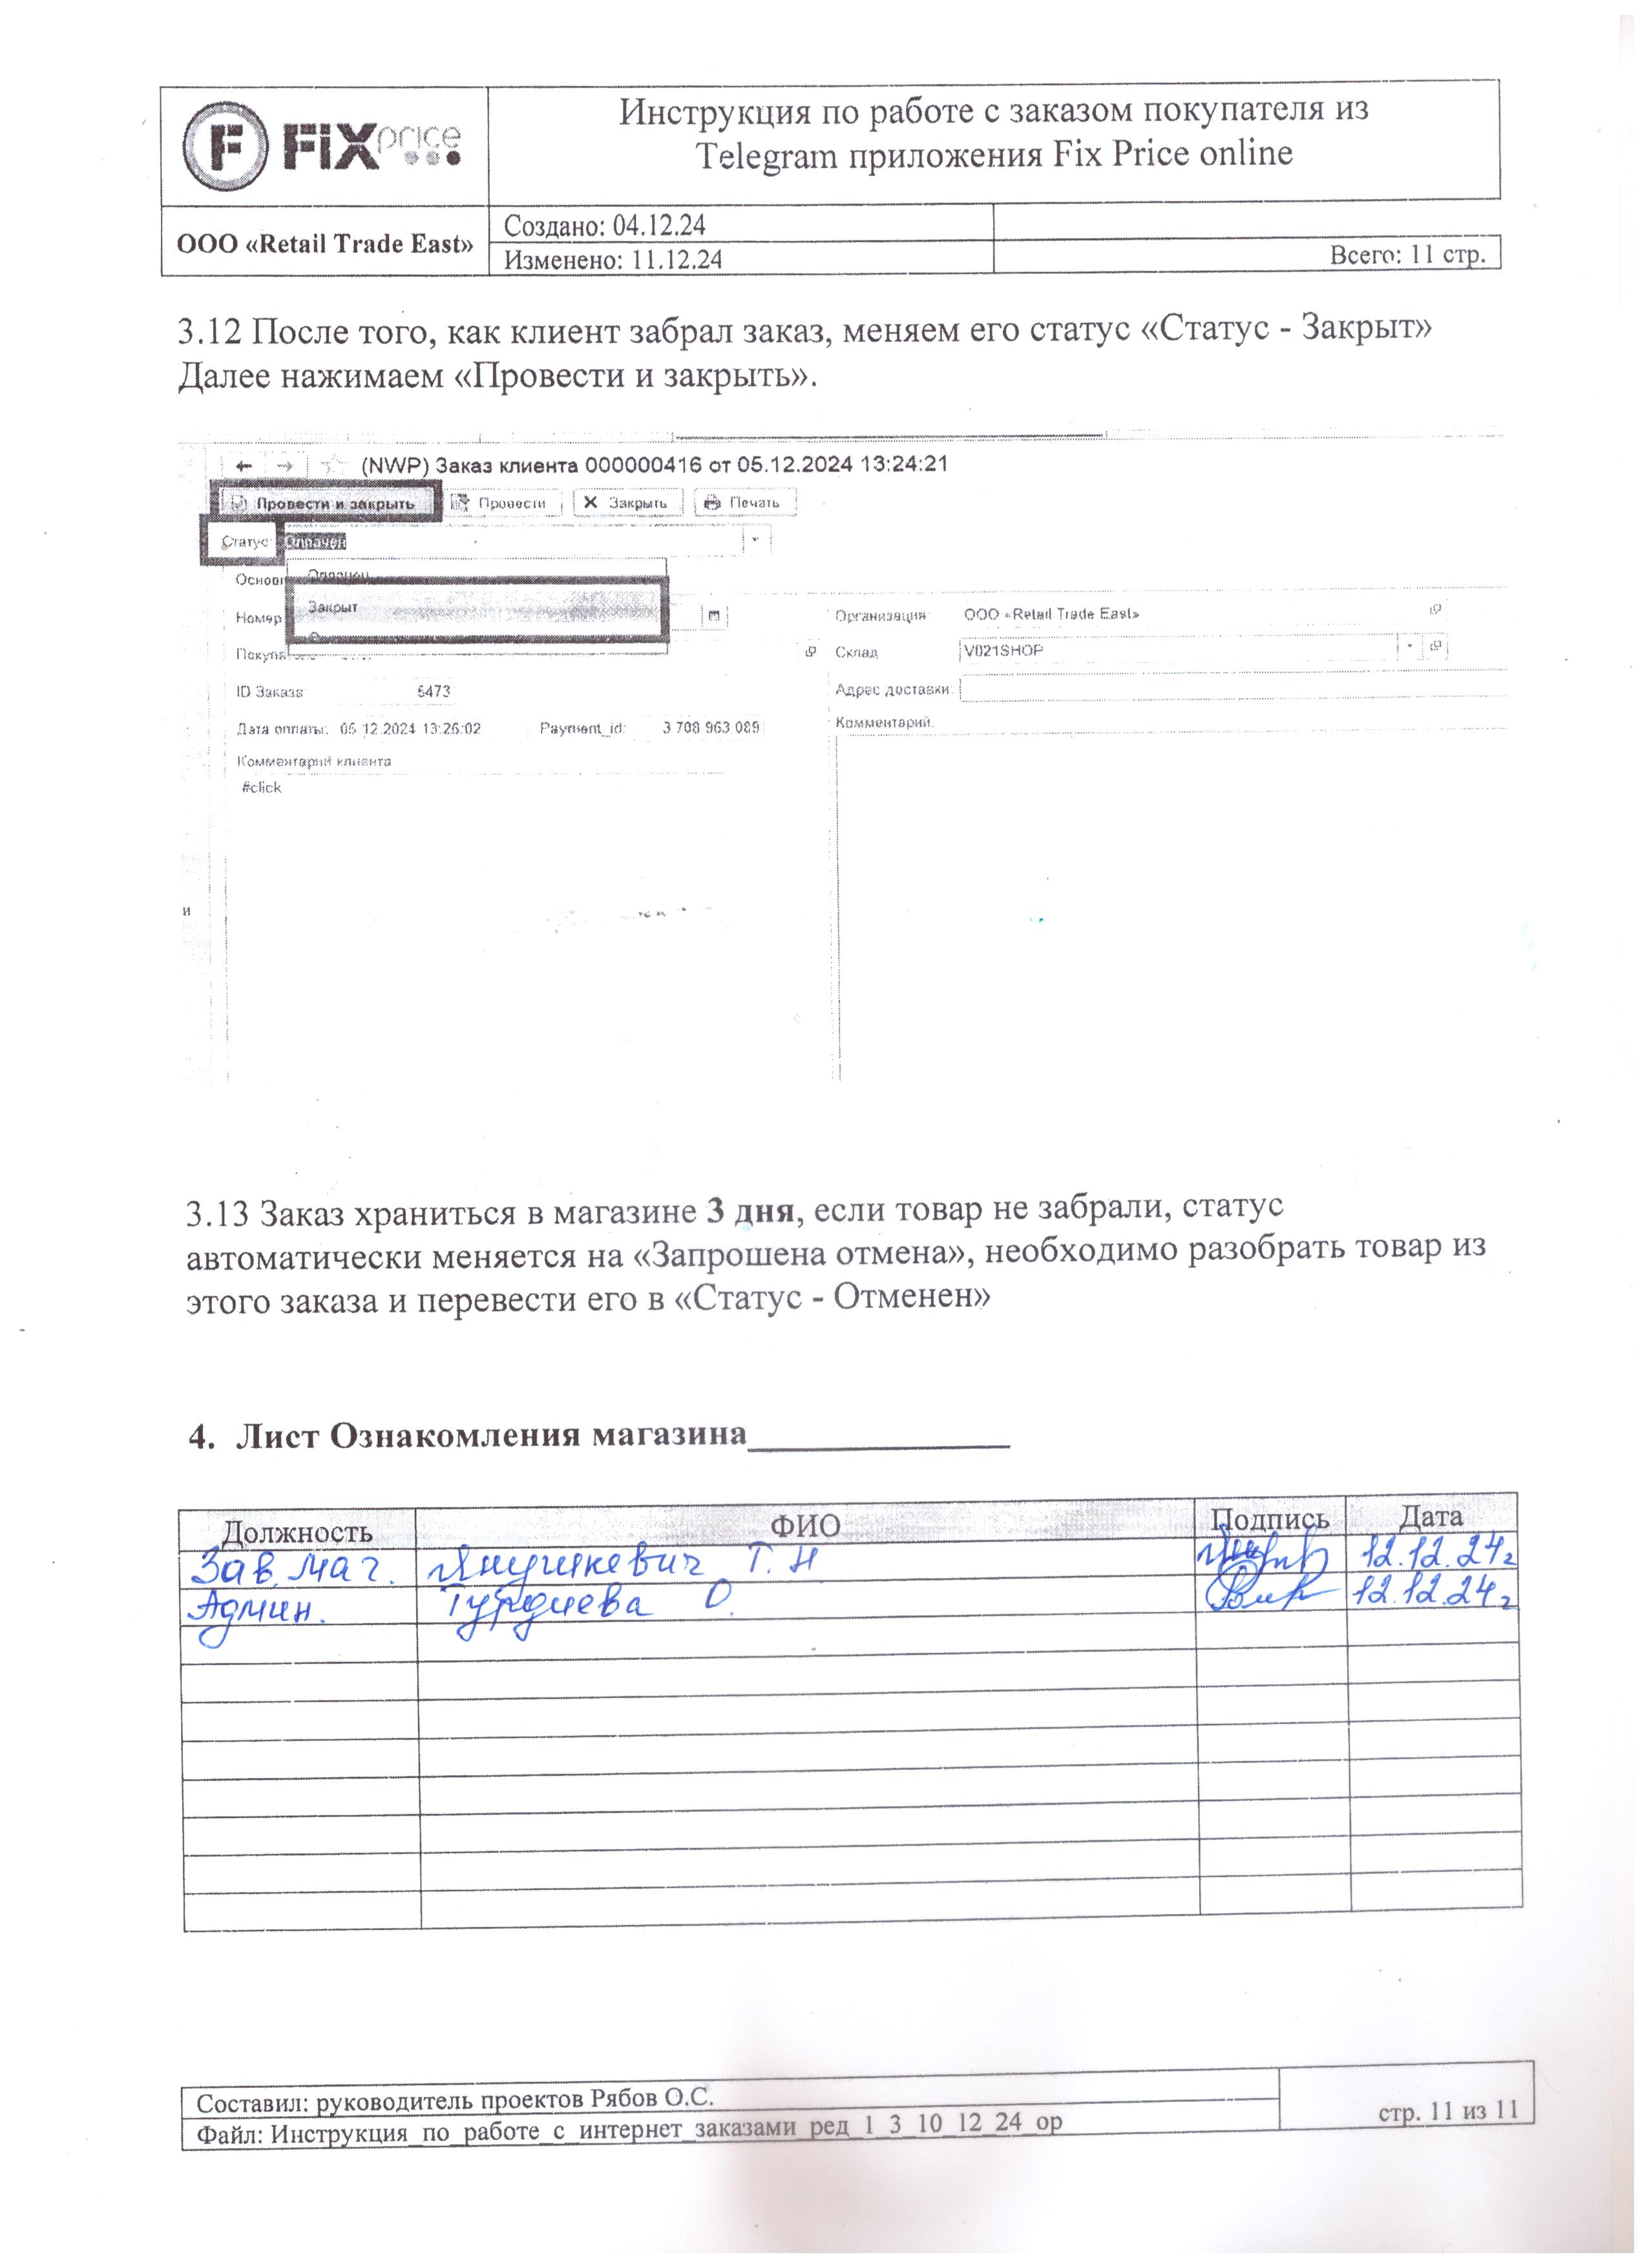 FiXprice
Инструкция по работе с заказом покупателя из
Telegram приложения Fix Price online
ООО «Retail Trade East»
Создано: 04.12.24
Изменено: 11.12.24
Всего: 11 стр.
3.12 После того, как клиент забрал заказ, меняем его статус «Статус - Закрыт»
Далее нажимаем «Провести и закрыть».
(NWP) Заказ клиента 000000416 от 05.12.2024 13:24:21
Провести и закрыть Провести Закрыть Печать
Статус: Оплачен
Оплачен
Закрыт
Номер
Организация ООО «Retail Trade East»
Склад V021SHOP
ID Заказа 5473
Адрес доставки:
Дата оплаты: 05.12.2024 13:26:02 Payment_id: 3 708 963 089
Комментарий:
Комментарий клиента
#click
и
3.13 Заказ храниться в магазине 3 дня, если товар не забрали, статус
автоматически меняется на «Запрошена отмена», необходимо разобрать товар из
этого заказа и перевести его в «Статус - Отменен»
4. Лист Ознакомления магазина
Должность ФИО Подпись Дата
Зав. маг. Янушкевич Т. Н 12.12.24г
Админ. Турдиева О. 12.12.24г
Составил: руководитель проектов Рябов О.С.
Файл: Инструкция_по_работе_с_интернет_заказами_ред_1_3_10_12_24_ор
стр. 11 из 11